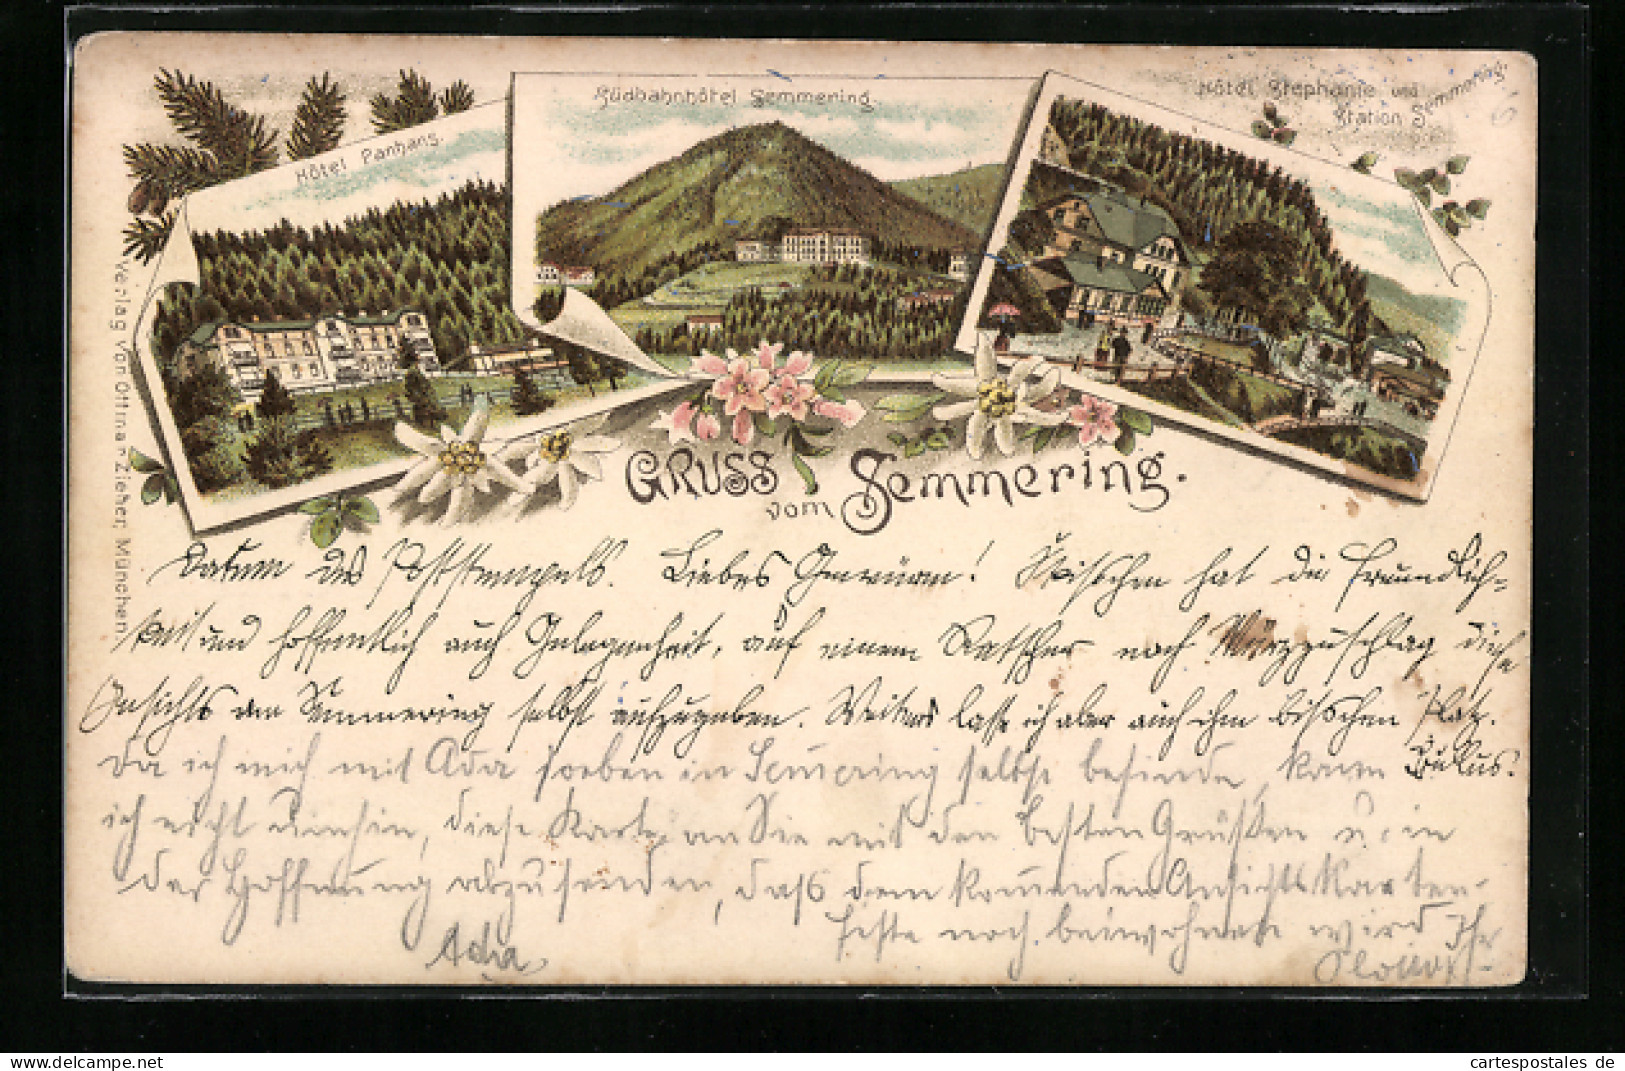 Hôtel Panhans.
Südbahnhôtel Semmering.
Hôtel Stephanie und
Station Semmering.
Verlag von Ottmar Zieher, München.
GRUSS
vom Semmering.
Datum des Poststempels. Liebes! hat die Freundlich-
keit und hoffentlich auch Gelegenheit, auf einem Rutscher nach Mürzzuschlag diese
Ansichts am Semmering selbst aufzugeben. Weiters lasse ich aber auch ihm bisschen Platz.
Da ich mich mit Ada soeben in Semmering selbst befinde, kann
ich nicht umhin, diese Karte an Sie mit den besten Grüßen u. in
der Hoffnung abzusenden, dass dem kommenden Ansichtskarten-
feste noch beiwohnen wird Ihr
Ada
www.cartespostales.de
cartespostales de